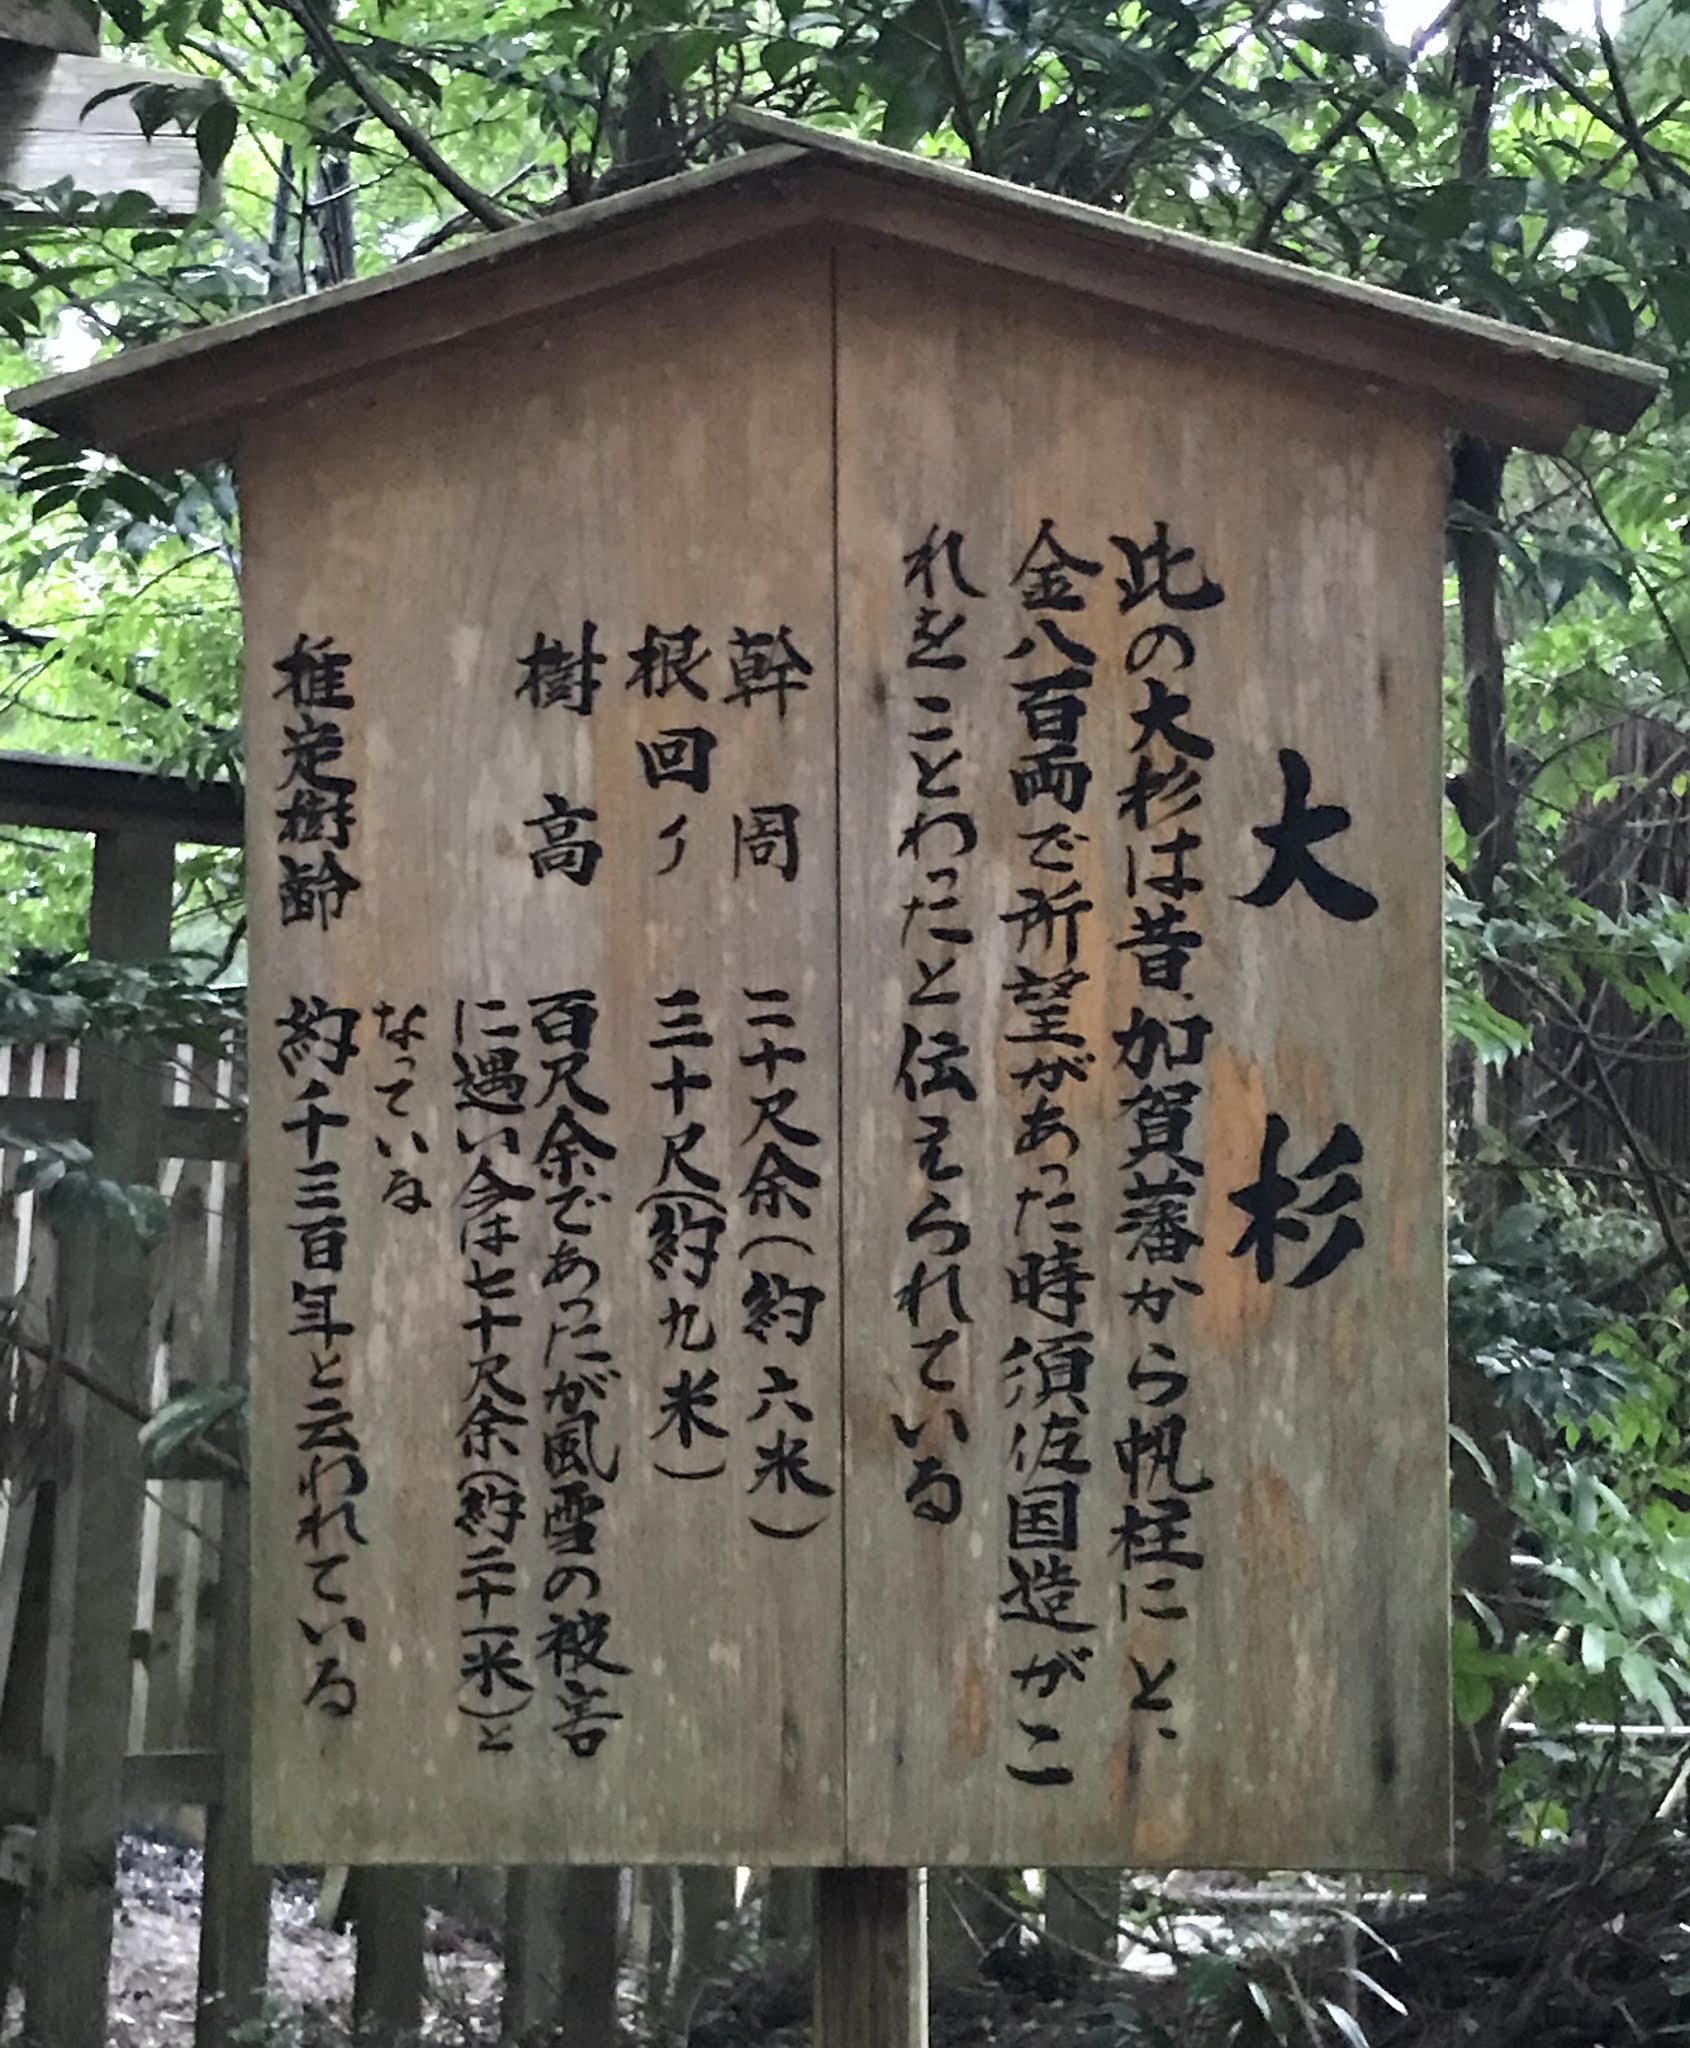 大杉
此の大杉は昔、加賀藩から帆柱にと、
金八百両で所望があった時須佐国造がこ
れをことわったと伝えられている
幹周 二十尺余(約六米)
根回り 三十尺(約九米)
樹高 百尺余であったが風雪の被害
に遇い今は七十尺余(約二十一米)と
なっている
推定樹齢 約千三百年と云われている